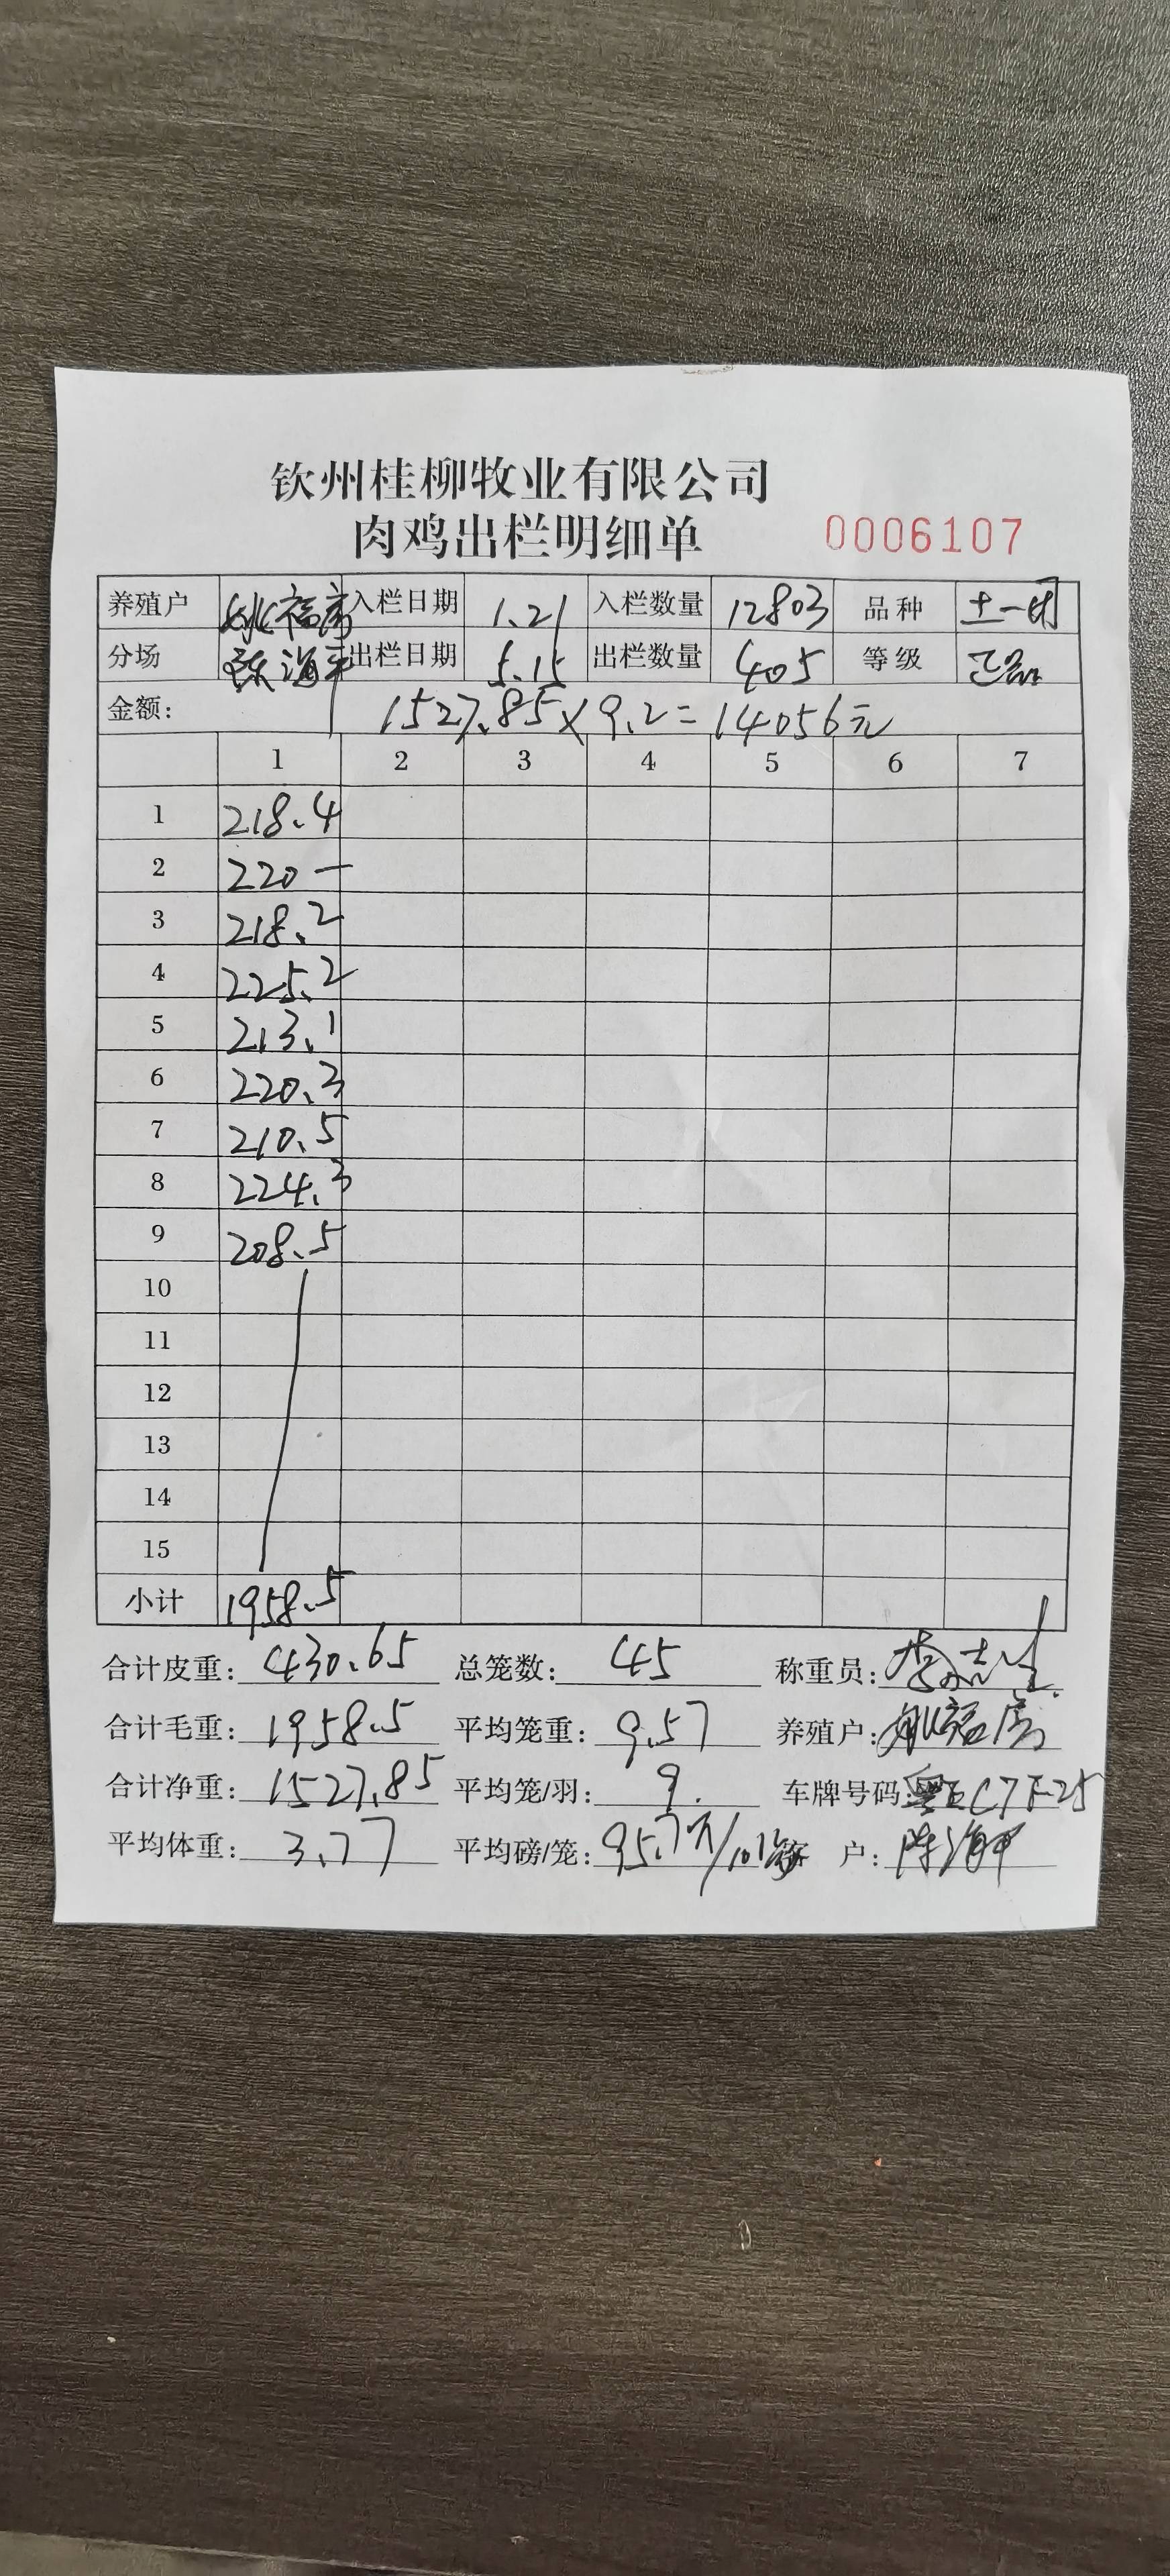 钦州桂柳牧业有限公司
肉鸡出栏明细单 0006107
养殖户 姚福 入栏日期 1.21 入栏数量 12803 品种 土一
分场 陈海 出栏日期 5.15 出栏数量 405 等级 正品
金额: 1527.85×9.2=14056元
1 2 3 4 5 6 7
1 218.4
2 220-
3 218.2
4 225.2
5 213.1
6 220.3
7 210.5
8 224.3
9 208.5
10
11
12
13
14
15
小计 1958.5
合计皮重: 430.65 总笼数: 45 称重员: 李志
合计毛重: 1958.5 平均笼重: 9.57 养殖户: 姚福
合计净重: 1527.85 平均笼/羽: 9. 车牌号码: 粤
平均体重: 3.77 平均磅/笼: 95.7 户: 陈海